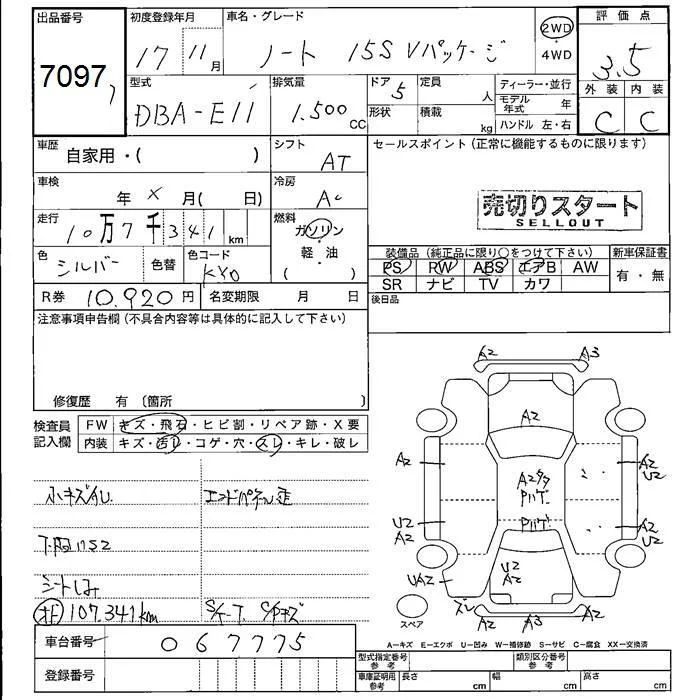 出品番号 初度登録年月 車名・グレード 評価点
7097 17 11月 ノート 15S Vパッケージ 2WD ・ 4WD 3.5
型式 排気量 ドア 定員 ディーラー・並行 外装 内装
DBA-E11 1.500 CC 5 人 モデル年式 年 C C
形状 積載 kg ハンドル 左・右
車歴 自家用・( ) シフト AT セールスポイント(正常に機能するものに限ります)
車検 年 X 月( 日) 冷房 AC
売切りスタート
SELLOUT
走行 10万7千341 km 燃料 ガソリン・軽・油 ( )
色 シルバー 色替 色コード KY0
装備品(純正品に限り○をつけて下さい) 新車保証書
PS RW ABS エアB AW 有・無
SR ナビ TV カワ
R券 10.920円 名変期限 月 日 後日品
注意事項申告欄(不具合内容等は具体的に記入して下さい)
修復歴 有 〔箇所 〕
検査員記入欄 FW キズ・飛石・ヒビ割・リペア跡・X要
内装 キズ・汚レ・コゲ・穴・スレ・キレ・破レ
小キズ凹 エンドパネル歪
下回
シートしみ
107.341km
A2 A3
A2
A2 A2 U2
A2 Pハゲ
Pハゲ
U2 A2 A2 U2
U2 A2
UA2 ズレ
A2 A3 A2
スペア
車台番号 067775
A-キズ E-エクボ U-凹み W-補修跡 S-サビ C-腐食 XX-交換済
登録番号
型式指定番号 参考 類別区分番号 参考
車庫証明用 参考 長さ cm 幅 cm 高さ cm